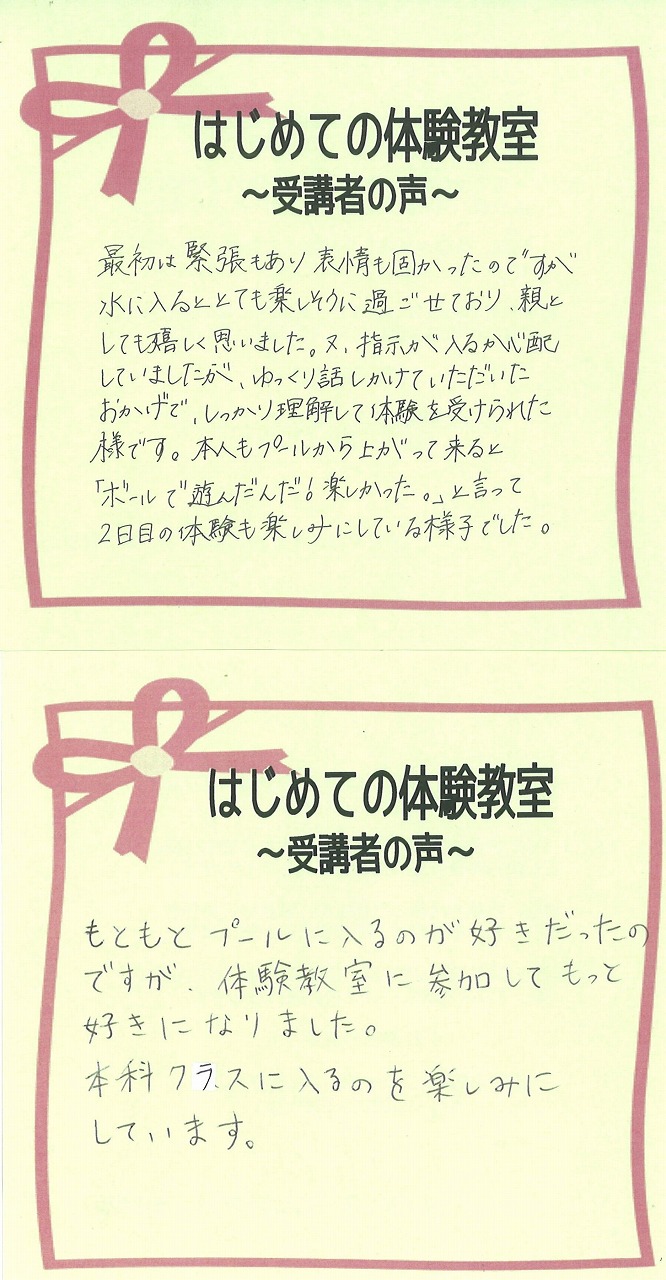 はじめての体験教室
～受講者の声～
最初は緊張もあり表情も固かったのですが
水に入るととても楽しそうに過ごせており、親と
しても嬉しく思いました。又、指示が入るか心配
していましたが、ゆっくり話しかけていただいた
おかげで、しっかり理解して体験を受けられた
様です。本人もプールから上がって来ると
「ボールで遊んだんだ！楽しかった。」と言って
2日目の体験も楽しみにしている様子でした。
はじめての体験教室
～受講者の声～
もともとプールに入るのが好きだったの
ですが、体験教室に参加してもっと
好きになりました。
本科クラスに入るのを楽しみに
しています。